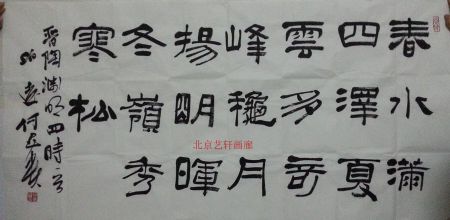 春水滿
四澤夏
雲多奇
峰穐月
揚明暉
冬嶺秀
寒松
晉陶渊明四時
北京艺轩画廊